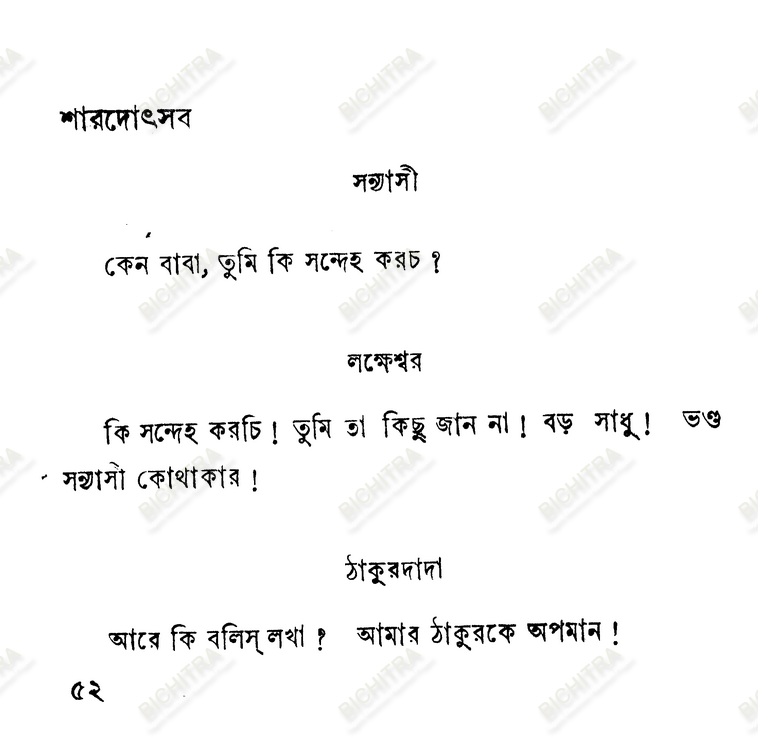 শারদোৎসব
সন্ন্যাসী
কেন বাবা, তুমি কি সন্দেহ করচ ?
লক্ষেশ্বর
কি সন্দেহ করচি ! তুমি তা কিছু জান না ! বড় সাধু ! ভণ্ড
সন্ন্যাসী কোথাকার !
ঠাকুরদাদা
আরে কি বলিস্ লখা ? আমার ঠাকুরকে অপমান !
৫২